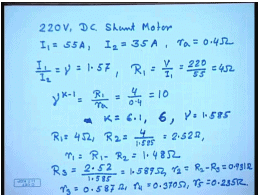 220V, D.C. Shunt Motor
I₁ = 55A, I₂ = 35A, rₐ = 0.4Ω
I₁/I₂ = γ = 1.57, R₁ = V/I₁ = 220/55 = 4Ω
γᴷ⁻¹ = R₁/rₐ = 4/0.4 = 10
K = 6.1, 6, γ = 1.585
R₁ = 4Ω, R₂ = 4/1.585 = 2.52Ω,
r₁ = R₁ - R₂ = 1.48Ω
R₃ = 2.52/1.585 = 1.589Ω, r₂ = R₂-R₃ = 0.931Ω
r₃ = 0.587Ω, r₄ = 0.370Ω, r₅ = 0.235Ω